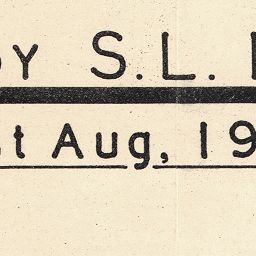 BY S.L.
st Aug, 19